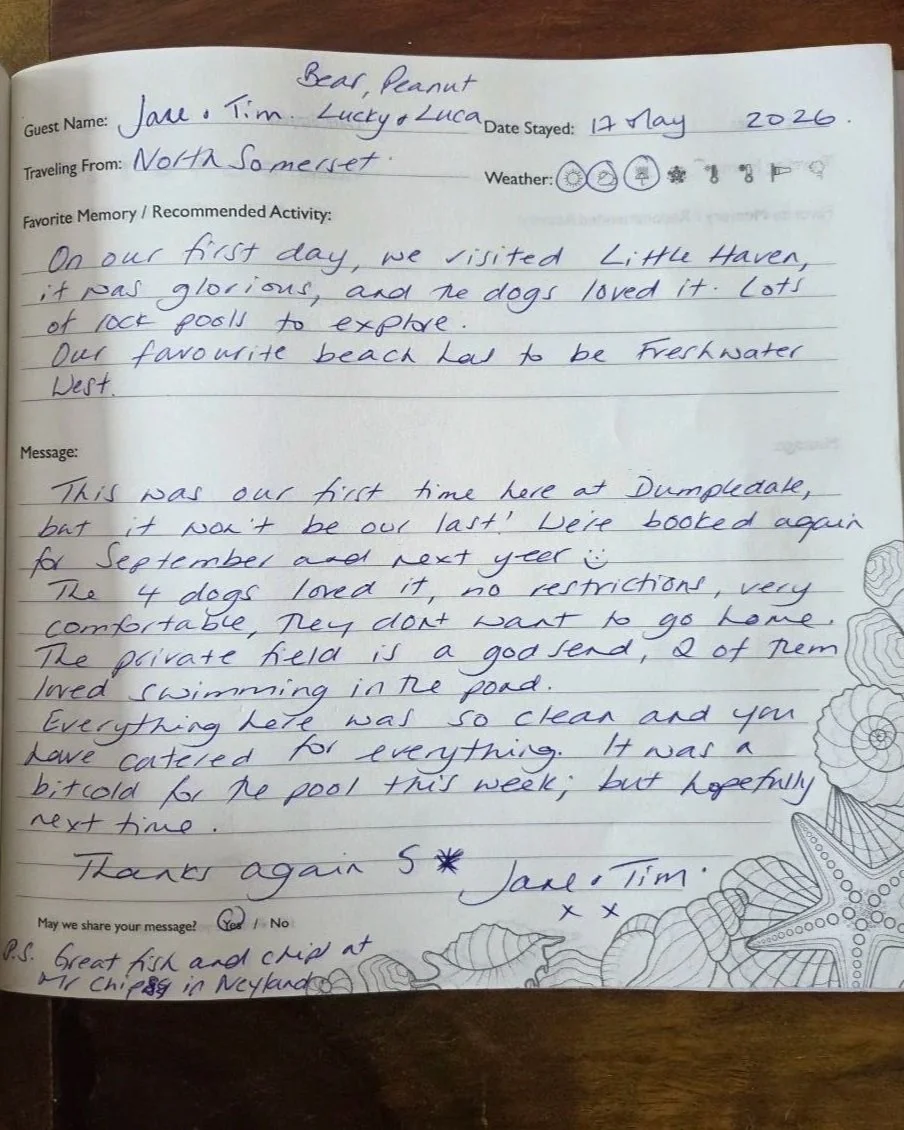 Bear, Peanut
Guest Name: Jane & Tim. Lucky & Luca Date Stayed: 17 May 2026.
Traveling From: North Somerset. Weather:
Favorite Memory / Recommended Activity:
On our first day, we visited Little Haven,
it was glorious, and the dogs loved it. Lots
of rock pools to explore.
Our favourite beach has to be Freshwater
West.
Message:
This was our first time here at Dumpledale,
but it won't be our last! We're booked again
for September and next year
The 4 dogs loved it, no restrictions, very
comfortable, They dont want to go home.
The private field is a god send, 2 of them
loved swimming in the pond.
Everything here was so clean and you
have catered for everything. It was a
bit cold for the pool this week; but hopefully
next time.
Thanks again 5 * Jane & Tim.
x x
May we share your message? Yes / No
P.S. Great fish and chips at
Mr Chips in Neyland